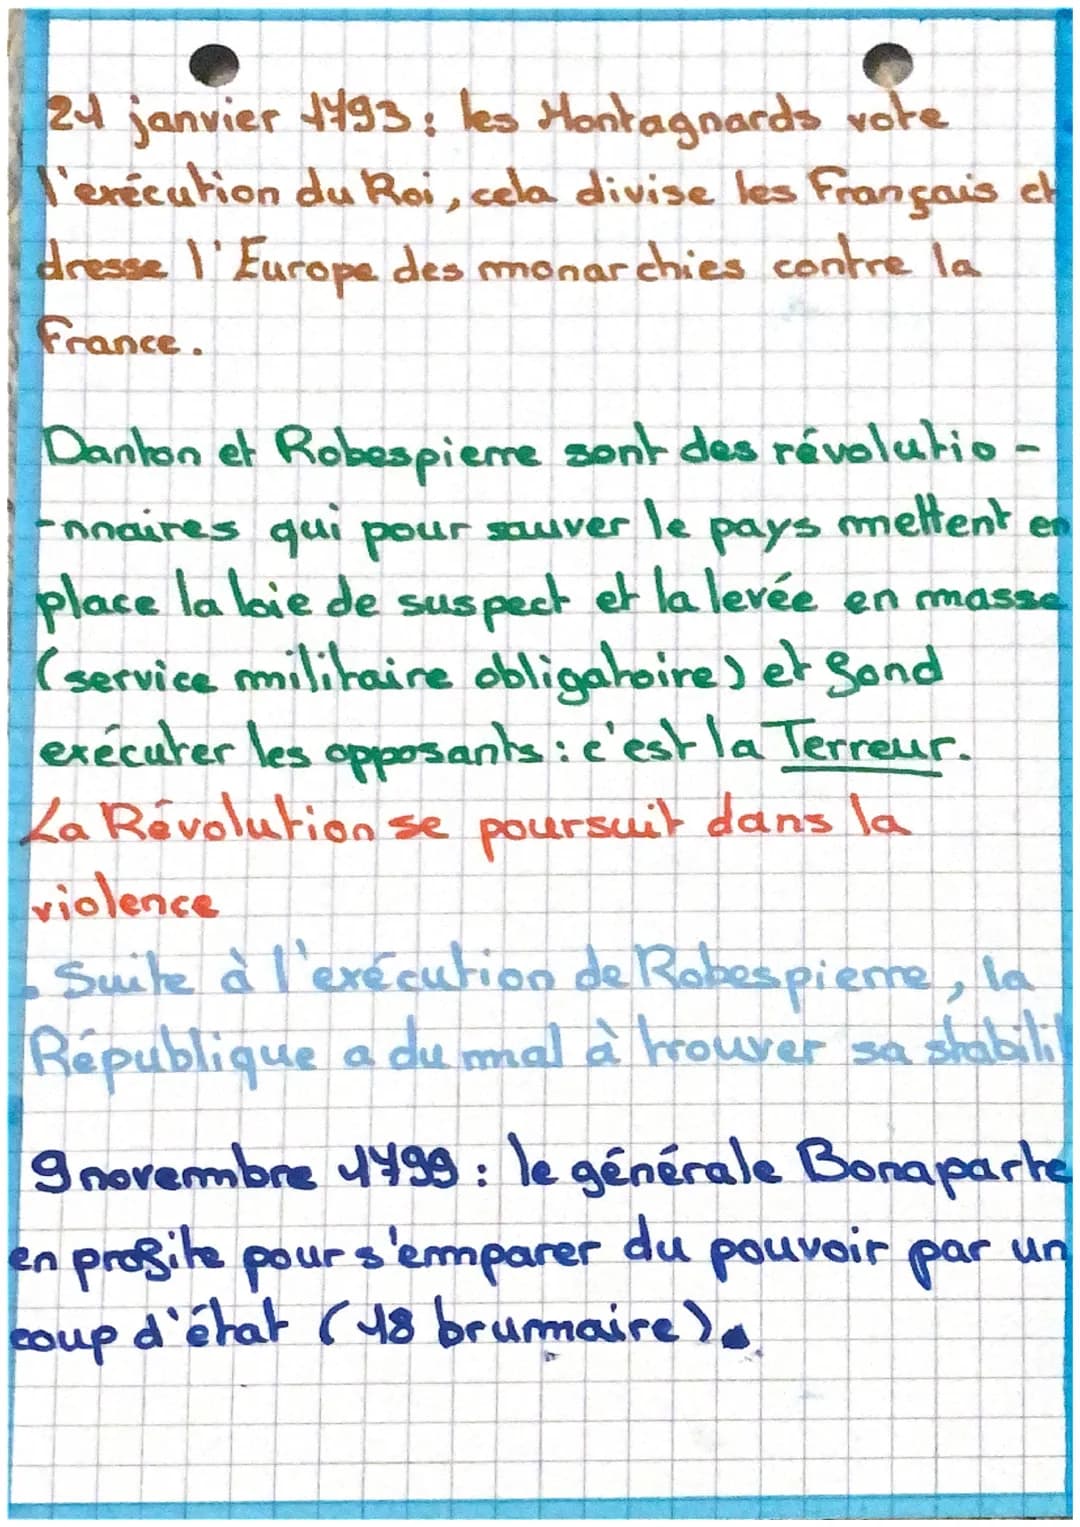 21 janvier 1793 : les Montagnards vote
l'exécution du Roi, cela divise les Français et
dresse l'Europe des monarchies contre la
France.
Danton et Robespierre sont des révolutio-
-nnaires qui pour sauver le pays mettent en
place la loie de suspect et la levée en masse
(service militaire obligatoire) et fond
exécuter les opposants : c'est la Terreur.
La Révolution se poursuit dans la
violence
. Suite à l'exécution de Robespierre, la
République a du mal à trouver sa stabilit
9 novembre 1799 : le générale Bonaparte
en profite pour s'emparer du pouvoir par un
coup d'état (18 brumaire).